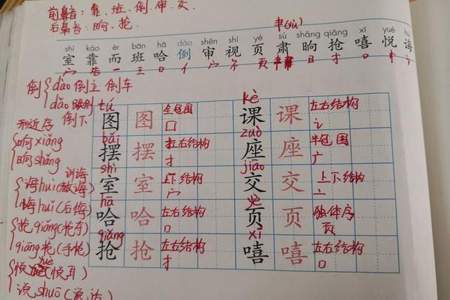 前鼻音：靠、班、倒、审、文
后鼻音：晌、抢
肃(sù)
shì kào ér bān hā dào shěn shì yè sù shǎng qiǎng xī yuè huì
室 靠 而 班 哈 倒 审 视 页 肃 晌 抢 嘻 悦 诲
倒 dào 倒立 倒车
dǎo 跌倒 倒下
形近字
tú
图 图 全包围 囗
kè
课 课 左右结构 讠
向 xiàng
晌 shǎng
bǎi
摆 摆 左右结构 扌
zuò
座 座 半包围 广
shì
室 室 上下结构 宀
jiāo
交 交 上下结构 亠
诲 huì (教诲)
悔 huǐ (后悔)
hā
哈 哈 左右结构 口
yè
页 页 独体字 页
抢 qiǎng
枪 qiāng (手枪)
qiǎng
抢 抢 左右结构 扌
xī
嘻 嘻 左右结构 口
悦 yuè
说 shuō